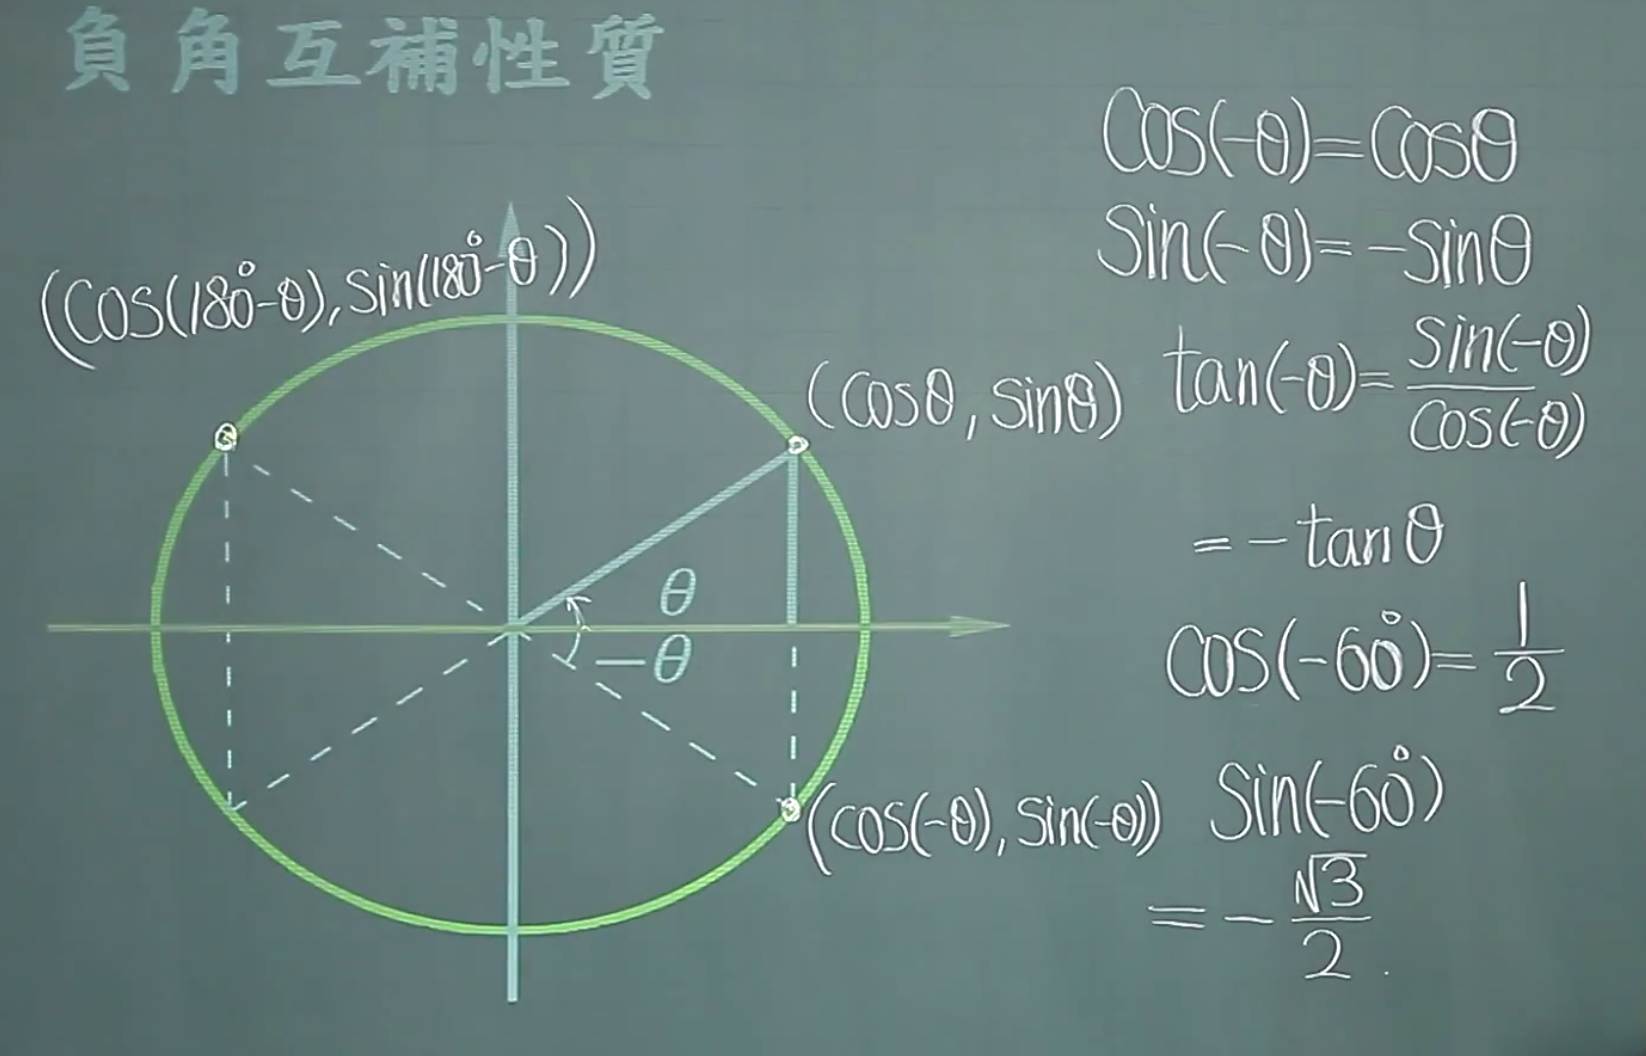 負角互補性質
(cos(180°-θ), sin(180°-θ))
(cosθ, sinθ)
θ
-θ
(cos(-θ), sin(-θ))
cos(-θ)=cosθ
sin(-θ)=-sinθ
tan(-θ)=sin(-θ)/cos(-θ)
=-tanθ
cos(-60°)=1/2
sin(-60°)
=-√3/2.